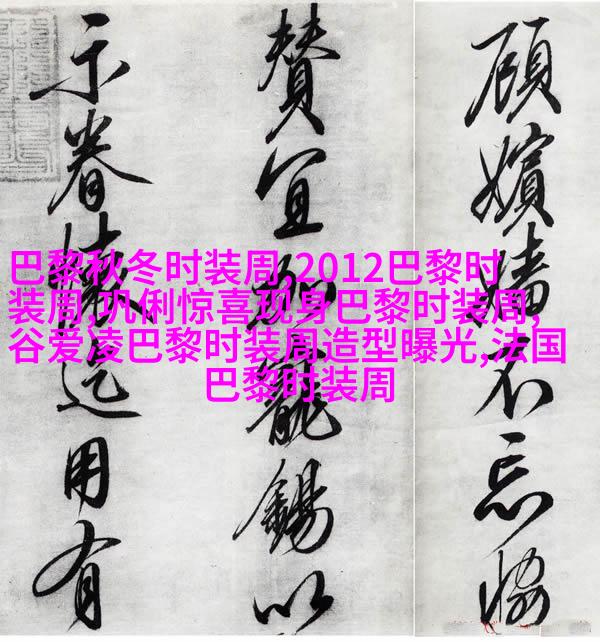 巴黎秋冬时装周,2012巴黎时
装周,巩俐惊喜现身巴黎时装周,
谷爱凌巴黎时装周造型曝光,法国
巴黎时装周
顧嬪嬙不忘恊
賛宜加寵錫以
示眷懷迄用有